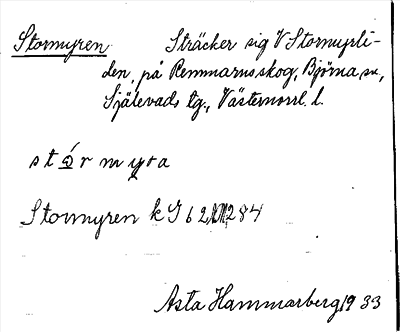 Stormyren Sträcker sig V Stormyrli-
den, på Remmarns skog, Björna sn,
Själevads tg., Västernorrl. l.
st ó̱ r m y ra
Stormyren k J 62, 284
Asta Hammarberg 1933